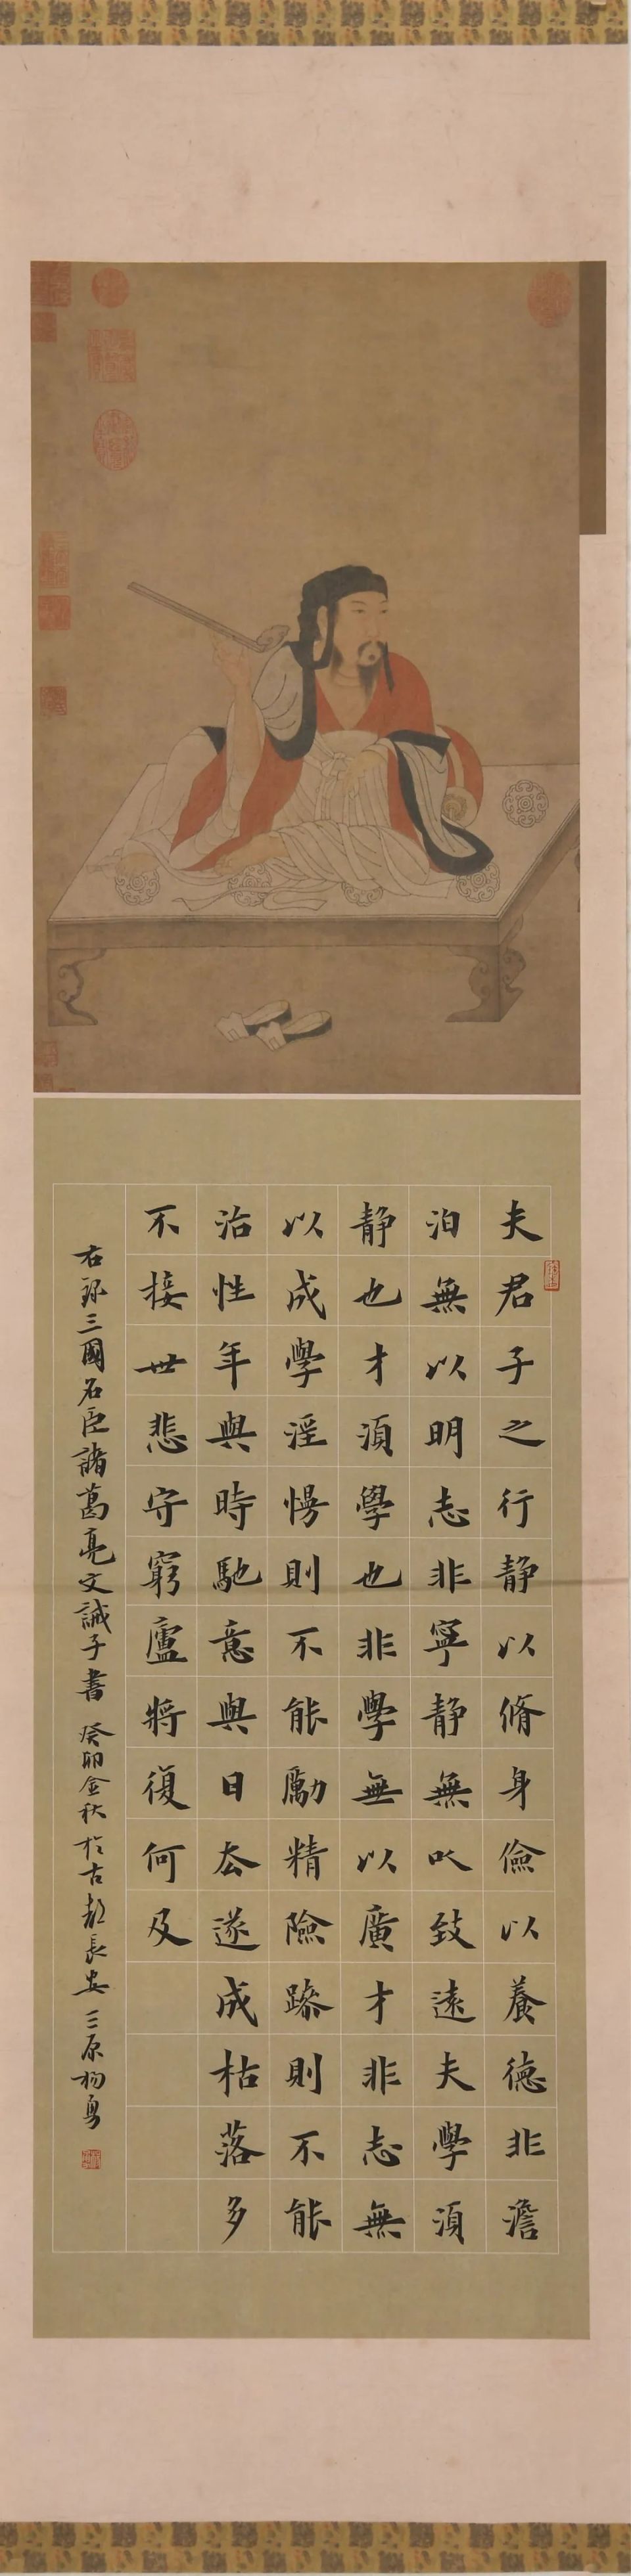 夫君子之行静以脩身儉以養德非澹
泊無以明志非寧静無以致遠夫學須
静也才須學也非學無以廣才非志無
以成學淫慢則不能勵精險躁則不能
治性年與時馳意與日去遂成枯落多
不接世悲守窮廬將復何及
右録三國名臣諸葛亮文誡子書 癸卯金秋於古都長安 三原楊勇